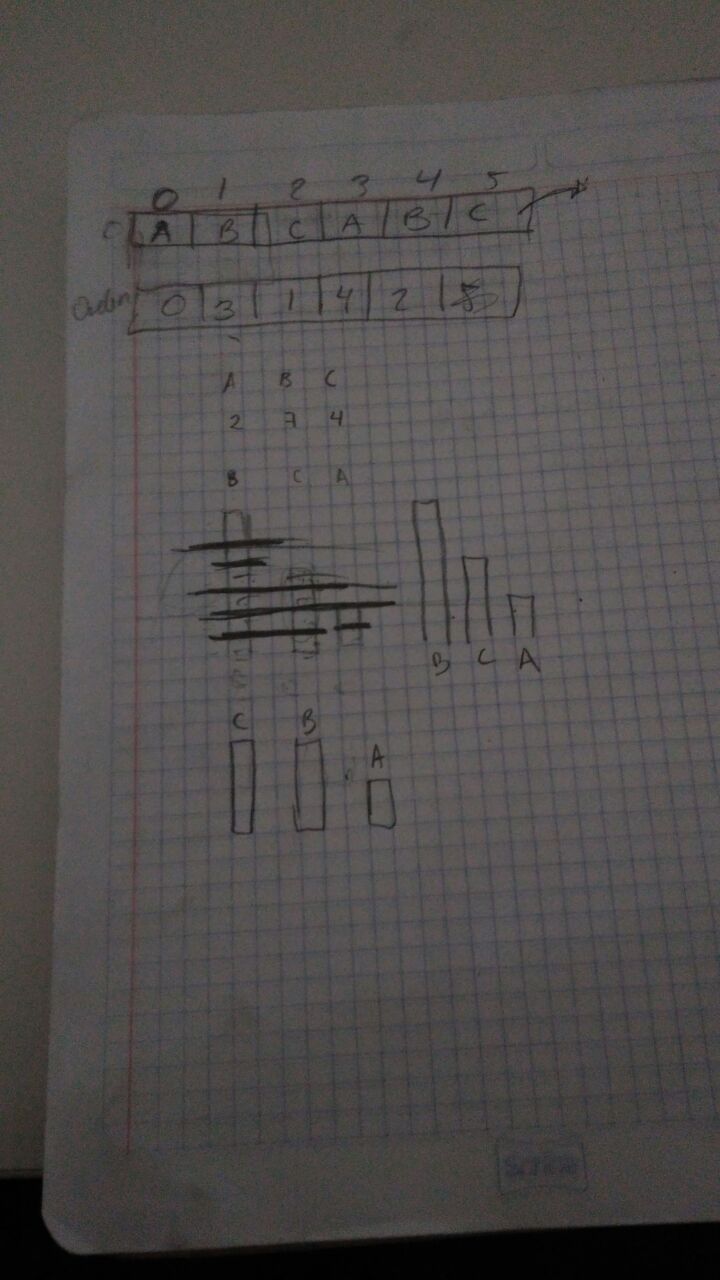 0 1 2 3 4 5
A B C A B C
Orden 0 3 1 4 2
A B C
2 7 4
B C A
B C A
C B
A